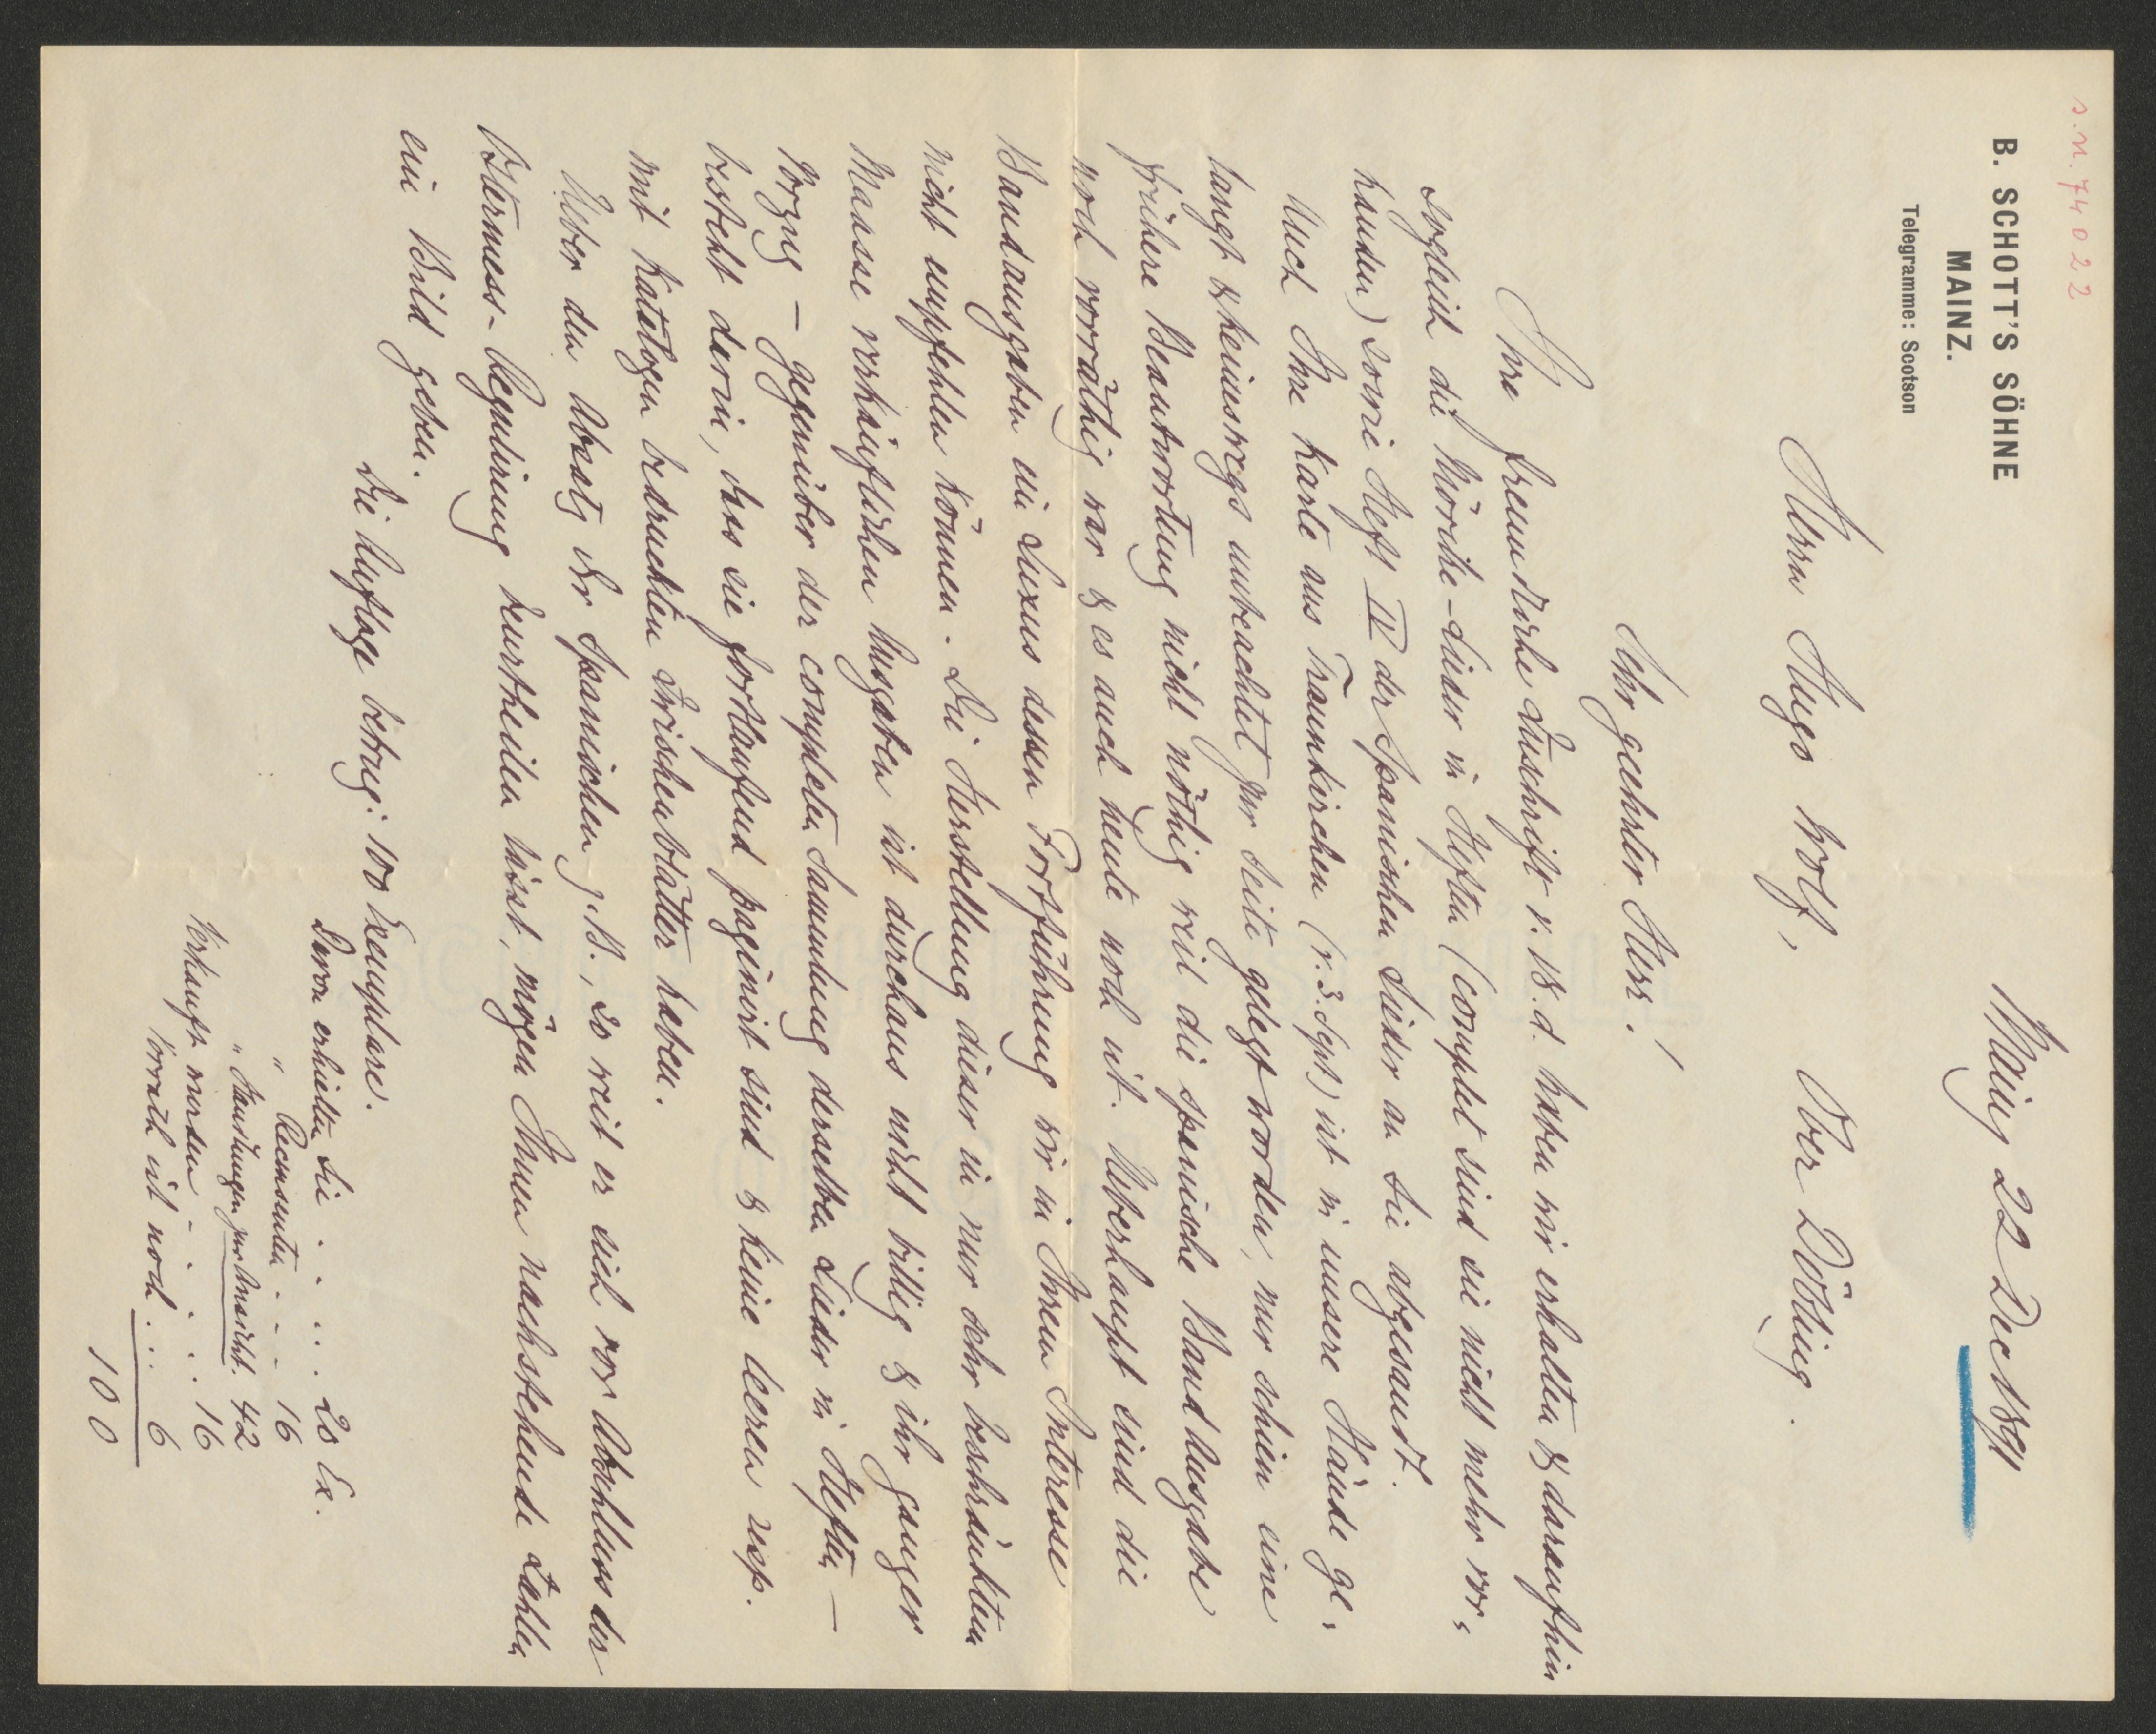 s.n. 74022
B. SCHOTT'S SÖHNE
MAINZ.
Telegramme: Scotson
Mainz 22 Dec 1891
Herrn Hugo Wolf, Ober Döbling.
Sehr geehrter Herr!
Ihre freundliche Zuschrift v. 18. d. haben wir erhalten & daraufhin
sogleich die Mörike-Lieder in Heften (complet sind sie nicht mehr vor-
handen) sowie Heft IV der Spanischen Lieder an Sie abgesandt.
Auch Ihre Karte aus Traunkirchen (v. 3. Sept) ist in unsere Hände ge-
langt & keineswegs unbeachtet zur Seite gelegt worden, nur schien eine
frühere Beantwortung nicht nöthig weil die spanische Band Ausgabe
noch vorräthig war & es auch heute noch ist. Überhaupt sind die
Bandausgaben ein Luxus dessen Fortführung wir in Ihrem Interesse
nicht empfehlen können. Die Herstellung dieser in nur sehr beschränktem
Maasse verkäuflichen Ausgaben ist durchaus nicht billig & ihr ganzer
Vorzug – gegenüber der completen Sammlung derselben Lieder in Heften –
besteht darin, dass sie fortlaufend paginirt sind & keine leeren resp.
mit Katalogen bedruckten Zwischenblätter haben.
Ueber den Absatz der Spanischen z. B., so weit er sich vor Abschluss der
Ostermess-Regulirung beurtheilen lässt, mögen Ihnen nachstehende Zahlen
ein Bild geben.
Die Auflage betrug: 100 Exemplare.
Davon erhielten Sie . . . . . 20 Ex.
" Recensenten . . . 16
" Handlungen zur Ansicht. 42
Verkauft wurden . . . . 16
Vorrath ist noch . . . 6
100